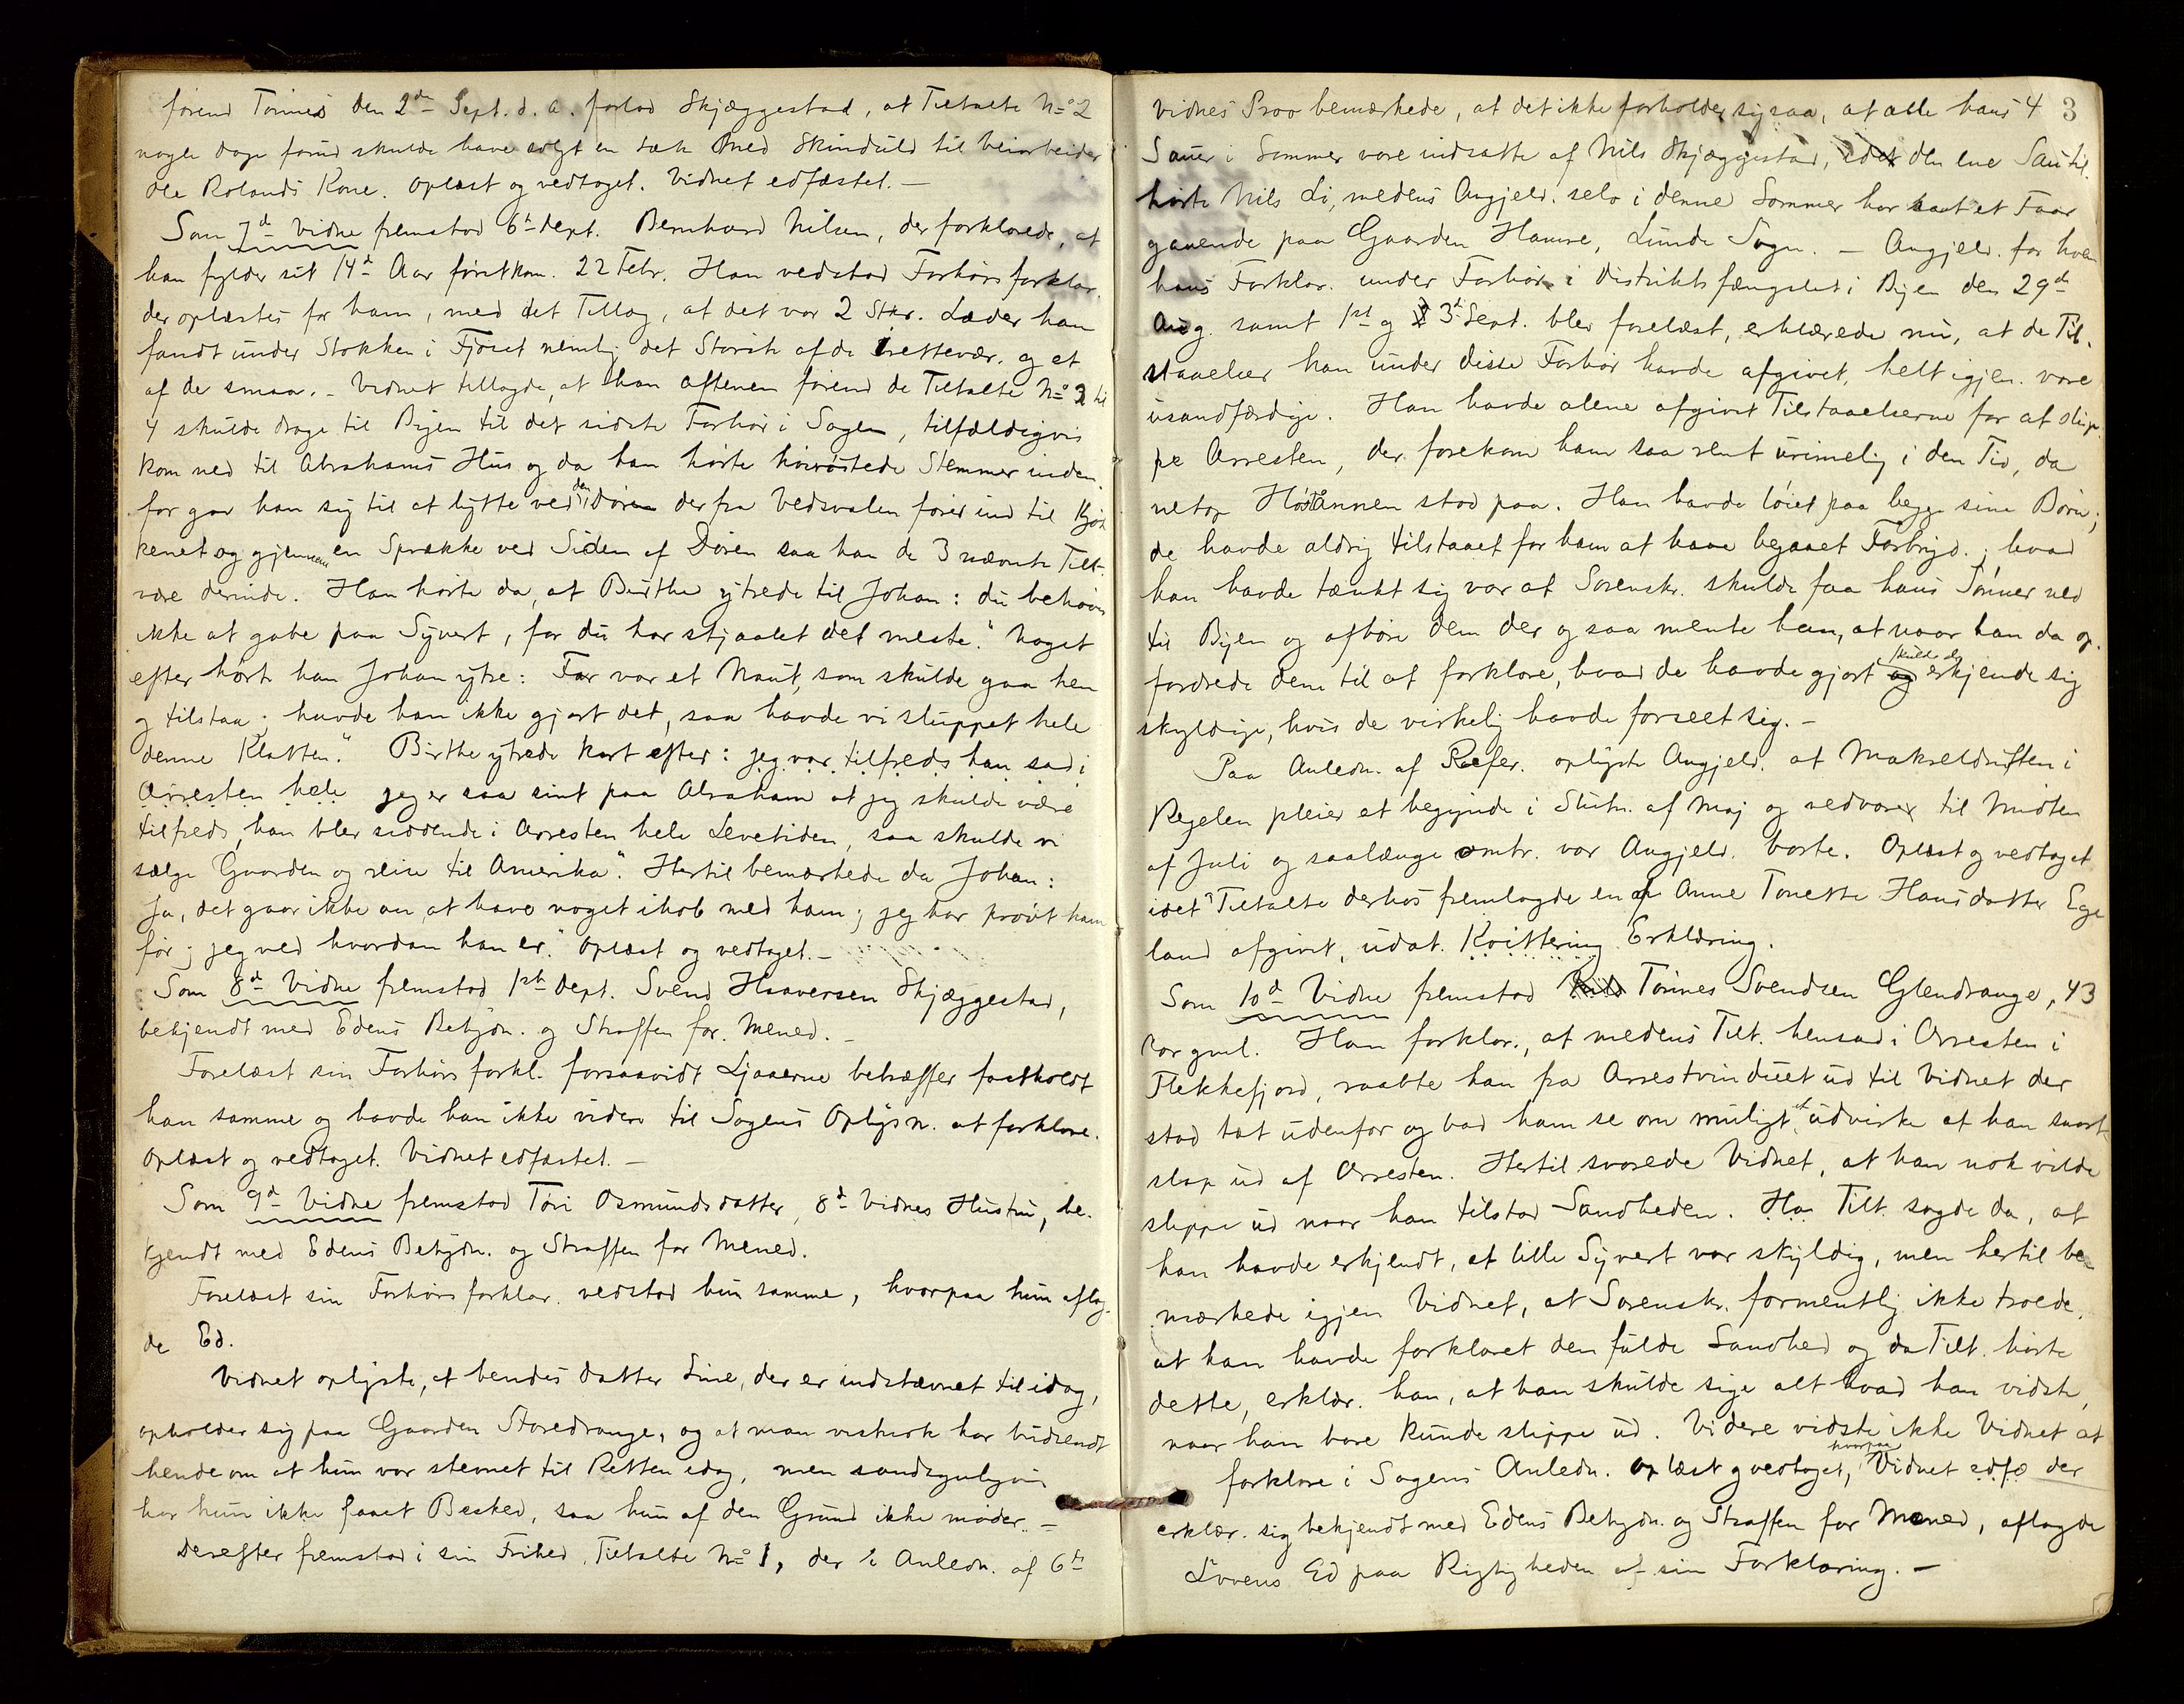 førend Tønnes den 2den Sept. d. a. forlod Skjæggestad, at Tiltalte No 2
nogle dage forud skulde have solgt en Sæk med Skinduld til
Ole Rolands Kone. Oplæst og vedtaget. Vidnet edfæstet. —
Som 7d Vidne fremstod 6te Dept. Bernhard Nilsen, der forklarede, at
han fylder sit 14d Aar førstkom. 22 Febr. Han vedstod Forhørsforklar.
der oplæstes for ham, med det Tillæg, at det var 2 Stkr. Læder han
fandt under Stokken i Fjøset nemlig det Største af de i rettevær. og et
af de smaa. - Vidnet tillagde, at han aftenen førend de Tiltalte No 2 til
4 skulde drage til Byen til det sidste Forhør i Sagen, tilfældigvis
kom ned til Abrahams Hus og da han hørte høirøstede Stemmer inden
for gav han sig til at lytte ved den Døren der fra Vedsvalen fører ind til Kjøk
kenet og gjennem en Sprække ved Siden af Døren saa han de 3 nævnte Tilt.
være derinde. Han hørte da, at Birthe ytrede til Johan: du behøver
ikke at gabe paa Syvert, for du har stjaalet det meste." Noget
efter hørte han Johan ytre: Far var et Naut, som skulde gaa hen
og tilstaa; havde han ikke gjort det, saa havde vi sluppet hele
denne Klatten." Birthe ytrede kort efter: jeg var tilfreds han sad i
Arresten hele jeg er saa sint paa Abraham at jeg skulde være
tilfreds, han blev siddende i Arresten hele Levetiden, saa skulde vi
sælge Gaarden og reise til Amerika". Hertil bemærkede da Johan:
Ja, det gaar ikke an, at have noget ihob med ham; jeg har prøvt ham
før; jeg ved hvordan han er." Oplæst og vedtaget. —
Som 8d Vidne fremstod 1ste Dept. Svend Haaversen Skjæggestad,
bekjendt med Edens Betydn. og Straffen for Mened. —
Forelæst sin Forhørsforkl. forsaavidt Ljaaerne betræffer fastholdt
han samme og havde han ikke videre til Sagens Oplysn. at forklare.
Oplæst og vedtaget. Vidnet edfæstet. —
Som 9d Vidne fremstod Tøri Osmundsdatter, 8d Vidnes Hustru, be-
kjendt med Edens Betydn. og Straffen for Mened.
Forelæst sin Forhørsforklar. vedstod hun samme, hvorpaa hun aflag-
de Ed.
Vidnet oplyste, at hendes datter Sine, der er indstævnet til idag,
opholder sig paa Gaarden Storedrange, og at man vistnok har budsendt
hende om at hun var stevnet til Retten idag, men sandsynligvis
har hun ikke faaet Besked, saa hun af den Grund ikke møder. —
Derefter fremstod i sin Frihed, Tiltalte No 1, der i Anledn. af 6te
3
Vidnes Prov bemærkede, at det ikke forholder sig saa, at alle hans 4
Sauer i Sommer vare indsatte af Nils Skjæggestad, idet den ene Sau til-
hørte Nils Li, medens Angjeld. selv i denne Sommer har havt et Faar
gaaende paa Gaarden Hamre, Lunde Sogn. — Angjeld. for hvem
hans Forklar. under Forhør i Distriktsfængslet i Byen den 29de
Aug. samt 1st og 3d Sept. blev forelæst, erklærede nu, at de Til-
staaelser han under disse Forhør havde afgivet, helt igjen. vare
usandfærdige. Han havde alene afgivet Tilstaaelserne for at slip-
pe Arresten, der forekom ham saa rent urimelig i den Tid, da
netop Høstånnen stod paa. Han havde løiet paa begge sine Børn;
de havde aldrig tilstaaet for ham at have begaaet Forbryd.; hvad
han havde tænkt sig var at Sorenskr. skulde faa hans Sønner ned
til Byen og afhøre dem der og saa mente han, at naar han da op-
fordrede dem til at forklare, hvad de havde gjort skulde de erkjende sig
skyldige, hvis de virkelig havde forseet sig. —
Paa Anledn. af Defer. oplyste Angjeld. at Makreldriften i
Regelen pleier at begynde i Slutn. af Maj og vedvarer til Midten
af Juli og saalænge omtr. var Angjeld. borte. Oplæst og vedtaget
idet Tiltalte derhos fremlagde en af Anne Tonette Hansdatter Ege
land afgivet, udat. Kvittering Erklæring.
Som 10d Vidne fremstod Tønnes Svendsen Glendrange, 43
Aar gml. Han forklar., at medens Tilt. hensad i Arresten i
Flekkefjord, raabte han fra Arrestvinduet ud til Vidnet der
stod tæt udenfor og bad ham se om muligt at udvirke at han snart
slap ud af Arresten. Hertil svarede Vidnet, at han nok vilde
slippe ud naar han tilstod Sandheden. Ha Tilt. sagde da, at
han havde erkjendt, at lille Syvert var skyldig, men hertil be
mærkede igjen Vidnet, at Sorenskr. formentlig ikke troede,
at han havde forklaret den fulde Sandhed og da Tilt. hørte
dette, erklær. han, at han skulde sige alt hvad han vidste,
naar han bare kunde slippe ud. Videre vidste ikke Vidnet at
forklare i Sagens Anledn. Oplæst og vedtaget, hvorpaa Vidnet edfæ der
erklær. sig bekjendt med Edens Betydn. og Straffen for Mened, aflagde
Lovens Ed paa Rigtigheden af sin Forklaring. —